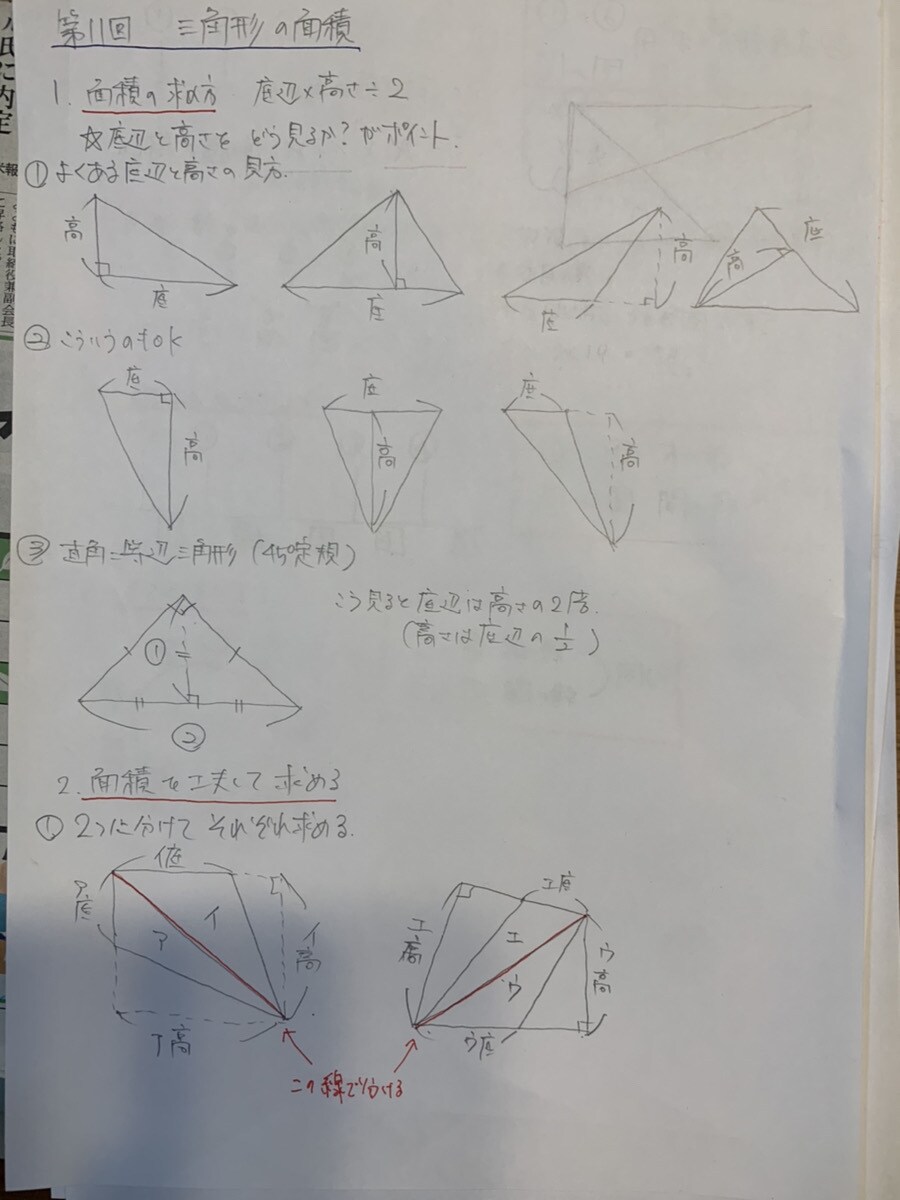 第11回 三角形の面積
1. 面積の求め方 底辺×高さ÷2
☆底辺と高さを どう見るか?がポイント.
① よくある底辺と高さの見方.
高
底
高
底
高
底
高
底
② こういうのもok
底
高
底
高
底
高
③ 直角二等辺三角形(45°定規)
こう見ると底辺は高さの2倍.
(高さは底辺の1/2)
①
②
2. 面積を工夫して求める
① 2つに分けて それぞれ求める.
イ底
ア底
イ
ア
イ高
ア高
エ底
エ高
エ
ウ
ウ高
ウ底
この線で分ける
氏に内定
副会長